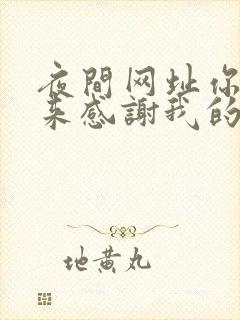 夜間网址你
来感謝我的
地黄丸